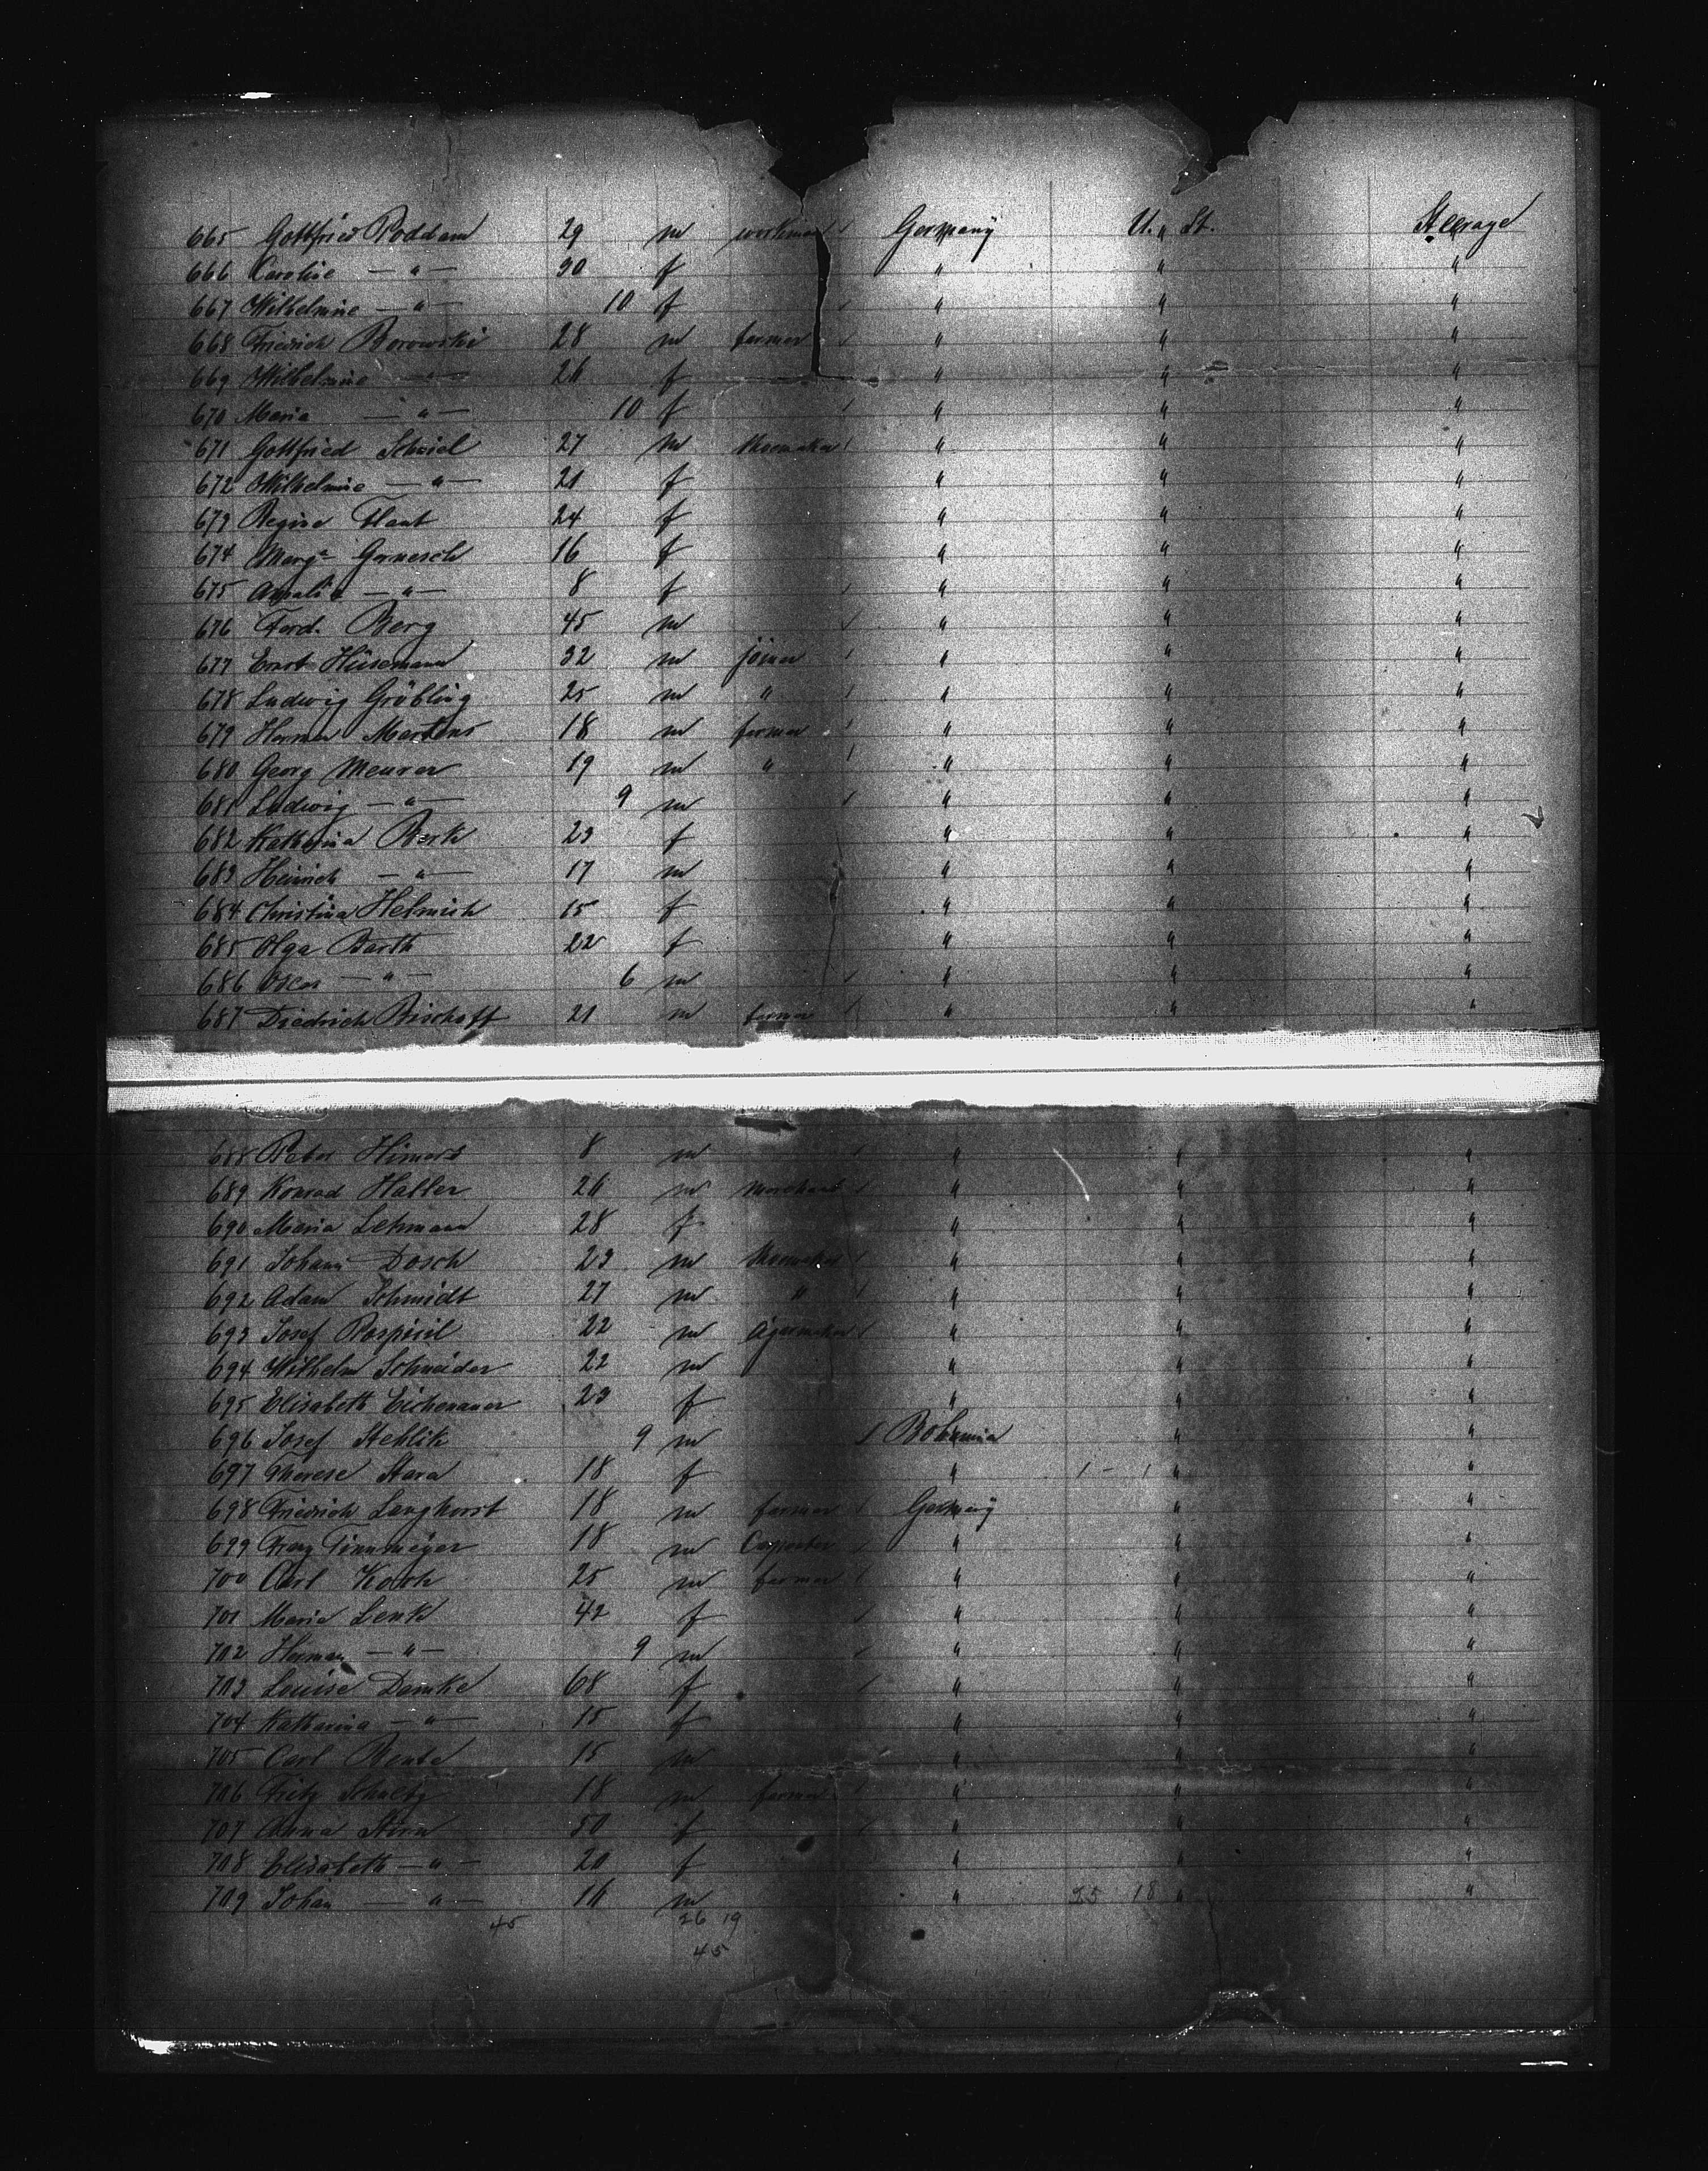 665 Gottfried Poddam 29 m workman Germany U. St. Steerage
666 Caroline — " — 30 f " " "
667 Wilhelmine — " — 10 f " " "
668 Friedrich Borowski 28 m farmer " " "
669 Wilhelmine — " — 26 f " " "
670 Maria — " — 10 f " " "
671 Gottfried 27 m shoemaker " " "
672 Wilhelmine — " — 21 f " " "
673 Regina 24 f " " "
674 Marg. Garnesch 16 f " " "
675 Amalie — " — 8 f " " "
676 Ferd. Berg 45 m " " "
677 Ernst Hüsemann 32 m joiner " " "
678 Ludwig Gröbling 25 m " " " "
679 Herman Martens 18 m farmer " " "
680 Georg Meurer 19 m " " " "
681 Ludwig — " — 9 m " " "
682 Katharina 23 f " " "
683 Heinrich — " — 17 m " " "
684 Christina Helmich 15 f " " "
685 Olga Barth 22 f " " "
686 Oscar — " — 6 m " " "
687 Diedrich Bischoff 21 m farmer " " "
688 Peter Himers 8 m " " "
689 Konrad Haller 26 m merchant " " "
690 Maria Lehmann 28 f " " "
691 Johann Dosch 23 m shoemaker " " "
692 Adam Schmidt 27 m " " " "
693 Josef Pospisil 22 m cigarmaker " " "
694 Wilhelm Schneider 22 m " " "
695 Elisabeth Eichenauer 23 f " " "
696 Josef Stehlik 9 m Bohemia " "
697 Therese Stara 18 f " 1 - 1 " "
698 Friedrich Langhorst 18 m farmer Germany " "
699 Franz Timmeyer 18 m Carpenter " " "
700 Carl Koch 25 m farmer " " "
701 Maria Lenk 42 f " " "
702 Herman — " — 9 m " " "
703 Louise Damke 68 f " " "
704 Katharina — " — 15 f " " "
705 Carl Bente 15 m " " "
706 Fritz Schultz 18 m farmer " " "
707 Anna Stern 50 f " " "
708 Elisabeth — " — 20 f " " "
709 Johan — " — 16 m " 25 18 " "
45 26 19
45